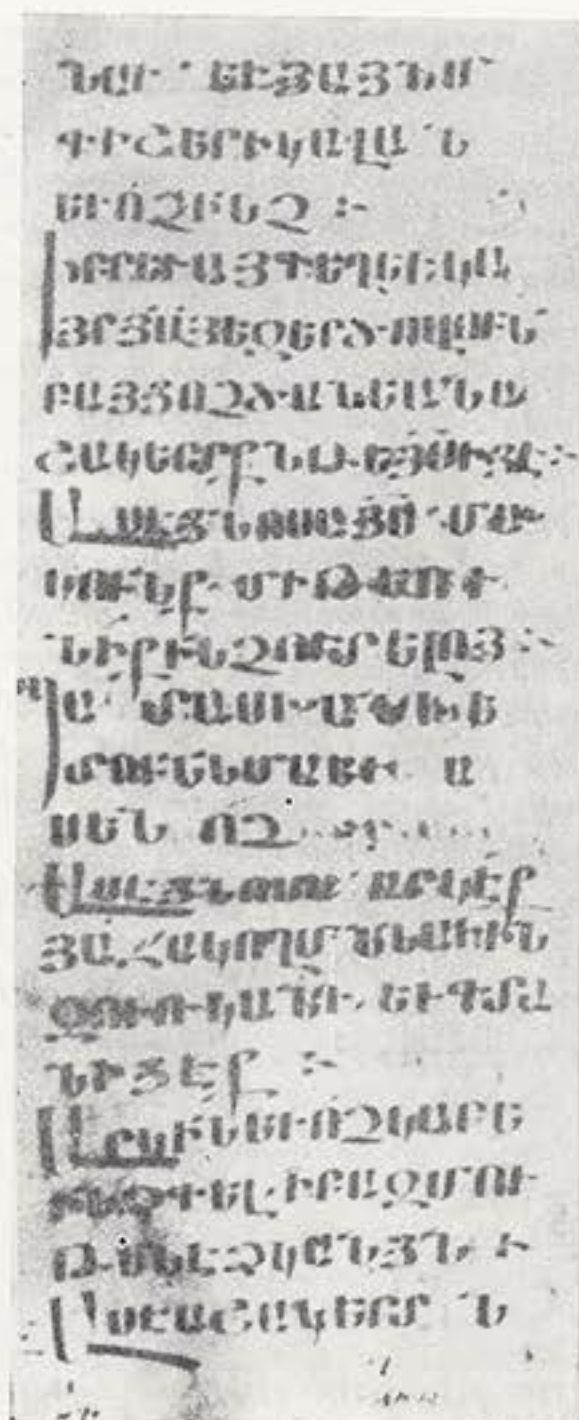 ՆԱՒ· ԵՒՅԱՅՆՄ
ԳԻՇԵՐԻԿԱԼԱՆ
ԵՒՈՉԻՆՉ :-
ԻԲՐԵՒԱՅԳԵՂԵՒԵԿԱ
ՅԵԶԵՐԾՈՎՈՒՆ
ԲԱՅՑՈՉԾԱՆԵԱՆԱ
ՇԱԿԵՐՏՔՆԹԵ
ԱՍԷՑՆՈՍԱՅՍ ՄԱՆ
ԿՈՒՆՔ ՄԻԹԷՈՒ
ՆԻՔԻՆՉՈՒՏԵԼՈՅ :-
ՊԱՏԱՍԽԱՆԻԵ
ՏՈՒՆՆՄԱԵՒ Ա
ՍԵՆ ՈՉ
ԱՍԷՑՆՈՍԱ ԱՐԿԷՔ
ՅԱՋԱԿՈՂՄՆ ՆԱՒԻՆ
ԶՈՒՌԿԱՆԴ ԵՒԳՏԱ
ՆԻՑԷՔ :-
ԱՐԿԻՆԵՒՈՉԿԱՐԵ
ԻՆՁԳԵԼԻԲԱԶՄՈՒ
ԹԵՆԷՁԿԱՆՑՆ :-
ԱՍԷԱՇԱԿԵՐՏՆ